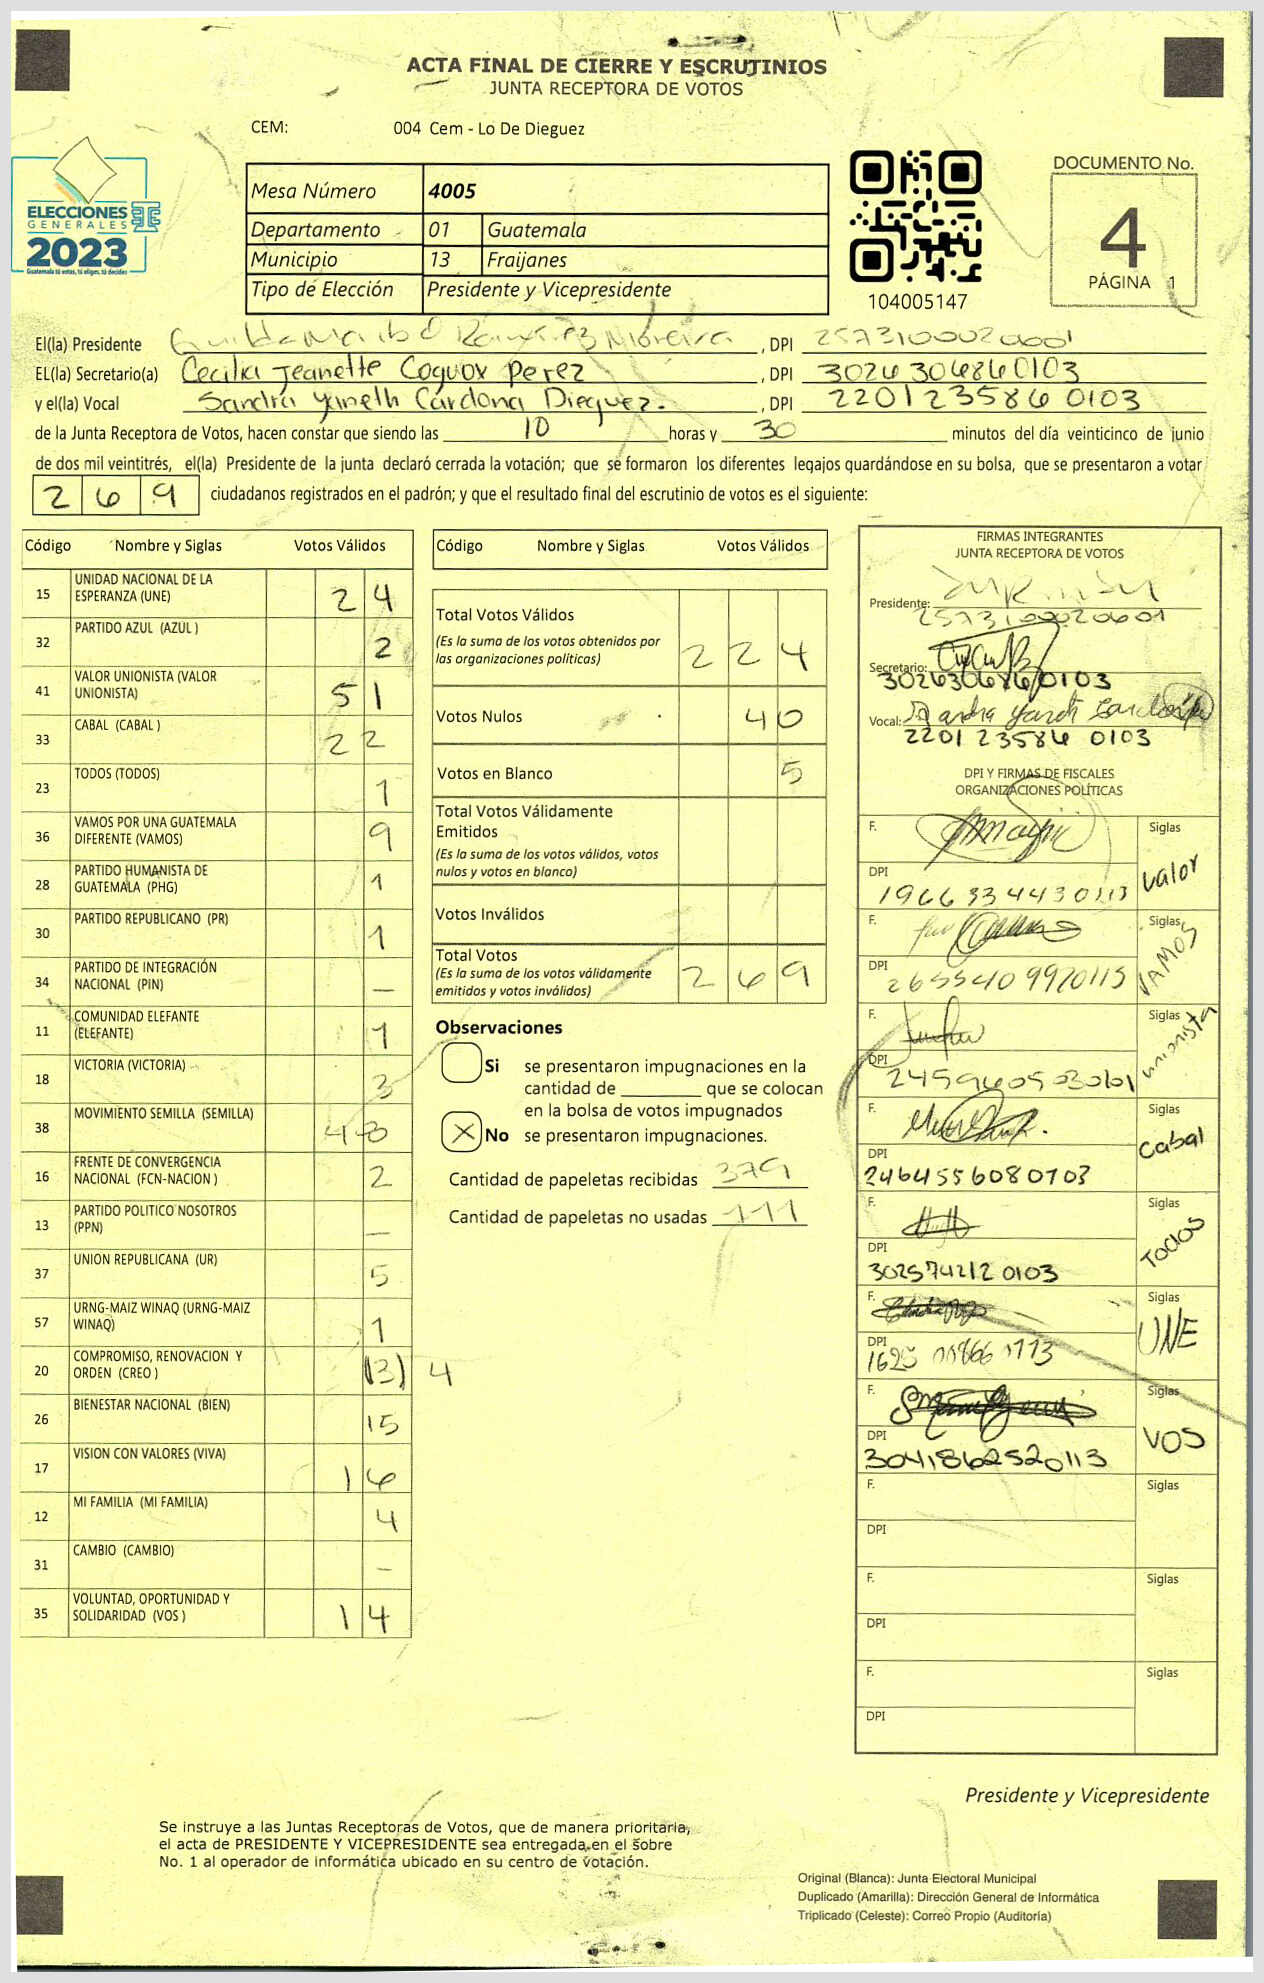 ACTA FINAL DE CIERRE Y ESCRUTINIOS
JUNTA RECEPTORA DE VOTOS
CEM: 004 Cem - Lo De Dieguez
ELECCIONES
GENERALES
2023
Guatemala tú votas, tú eliges, tú decides
Mesa Número 4005
Departamento 01 Guatemala
Municipio 13 Fraijanes
Tipo de Elección Presidente y Vicepresidente
104005147
DOCUMENTO No.
4
PÁGINA 1
El(la) Presidente Ramírez Moreira, DPI
EL(la) Secretario(a) Cecilia Jeanette Coguox Perez, DPI 3026306860103
y el(la) Vocal Sandra Yaneth Cardona Dieguez., DPI 2201235860103
de la Junta Receptora de Votos, hacen constar que siendo las 10 horas y 30 minutos del día veinticinco de junio
de dos mil veintitrés, el(la) Presidente de la junta declaró cerrada la votación; que se formaron los diferentes legajos guardándose en su bolsa, que se presentaron a votar
269 ciudadanos registrados en el padrón; y que el resultado final del escrutinio de votos es el siguiente:
Código Nombre y Siglas Votos Válidos
15 UNIDAD NACIONAL DE LA ESPERANZA (UNE) 24
32 PARTIDO AZUL (AZUL ) 2
41 VALOR UNIONISTA (VALOR UNIONISTA) 51
33 CABAL (CABAL ) 22
23 TODOS (TODOS) 1
36 VAMOS POR UNA GUATEMALA DIFERENTE (VAMOS) 9
28 PARTIDO HUMANISTA DE GUATEMALA (PHG) 1
30 PARTIDO REPUBLICANO (PR) 1
34 PARTIDO DE INTEGRACIÓN NACIONAL (PIN) —
11 COMUNIDAD ELEFANTE (ELEFANTE) 1
18 VICTORIA (VICTORIA) 3
38 MOVIMIENTO SEMILLA (SEMILLA) 48
16 FRENTE DE CONVERGENCIA NACIONAL (FCN-NACION ) 2
13 PARTIDO POLITICO NOSOTROS (PPN) —
37 UNION REPUBLICANA (UR) 5
57 URNG-MAIZ WINAQ (URNG-MAIZ WINAQ) 1
20 COMPROMISO, RENOVACION Y ORDEN (CREO ) (3) 4
26 BIENESTAR NACIONAL (BIEN) 15
17 VISION CON VALORES (VIVA) 16
12 MI FAMILIA (MI FAMILIA) 4
31 CAMBIO (CAMBIO) —
35 VOLUNTAD, OPORTUNIDAD Y SOLIDARIDAD (VOS ) 14
Código Nombre y Siglas Votos Válidos
Total Votos Válidos 224
(Es la suma de los votos obtenidos por
las organizaciones políticas)
Votos Nulos 40
Votos en Blanco 5
Total Votos Válidamente
Emitidos
(Es la suma de los votos válidos, votos
nulos y votos en blanco)
Votos Inválidos
Total Votos 269
(Es la suma de los votos válidamente
emitidos y votos inválidos)
Observaciones
Si se presentaron impugnaciones en la
cantidad de ________ que se colocan
en la bolsa de votos impugnados
X No se presentaron impugnaciones.
Cantidad de papeletas recibidas 379
Cantidad de papeletas no usadas 111
FIRMAS INTEGRANTES
JUNTA RECEPTORA DE VOTOS
Presidente:
Secretario:
3026306860103
Vocal: Sandra Yaneth Cardona
2201 23586 0103
DPI Y FIRMAS DE FISCALES
ORGANIZACIONES POLÍTICAS
F. Siglas Valor
DPI 1966334430113
F. Siglas VAMOS
DPI
F. Siglas unionista
DPI
F. Siglas Cabal
DPI
F. Siglas TODOS
DPI 3025742120103
F. Siglas UNE
DPI
F. Siglas VOS
DPI 3041862520113
F. Siglas
DPI
F. Siglas
DPI
F. Siglas
DPI
Presidente y Vicepresidente
Se instruye a las Juntas Receptoras de Votos, que de manera prioritaria,
el acta de PRESIDENTE Y VICEPRESIDENTE sea entregada en el sobre
No. 1 al operador de informática ubicado en su centro de votación.
Original (Blanca): Junta Electoral Municipal
Duplicado (Amarilla): Dirección General de Informática
Triplicado (Celeste): Correo Propio (Auditoría)